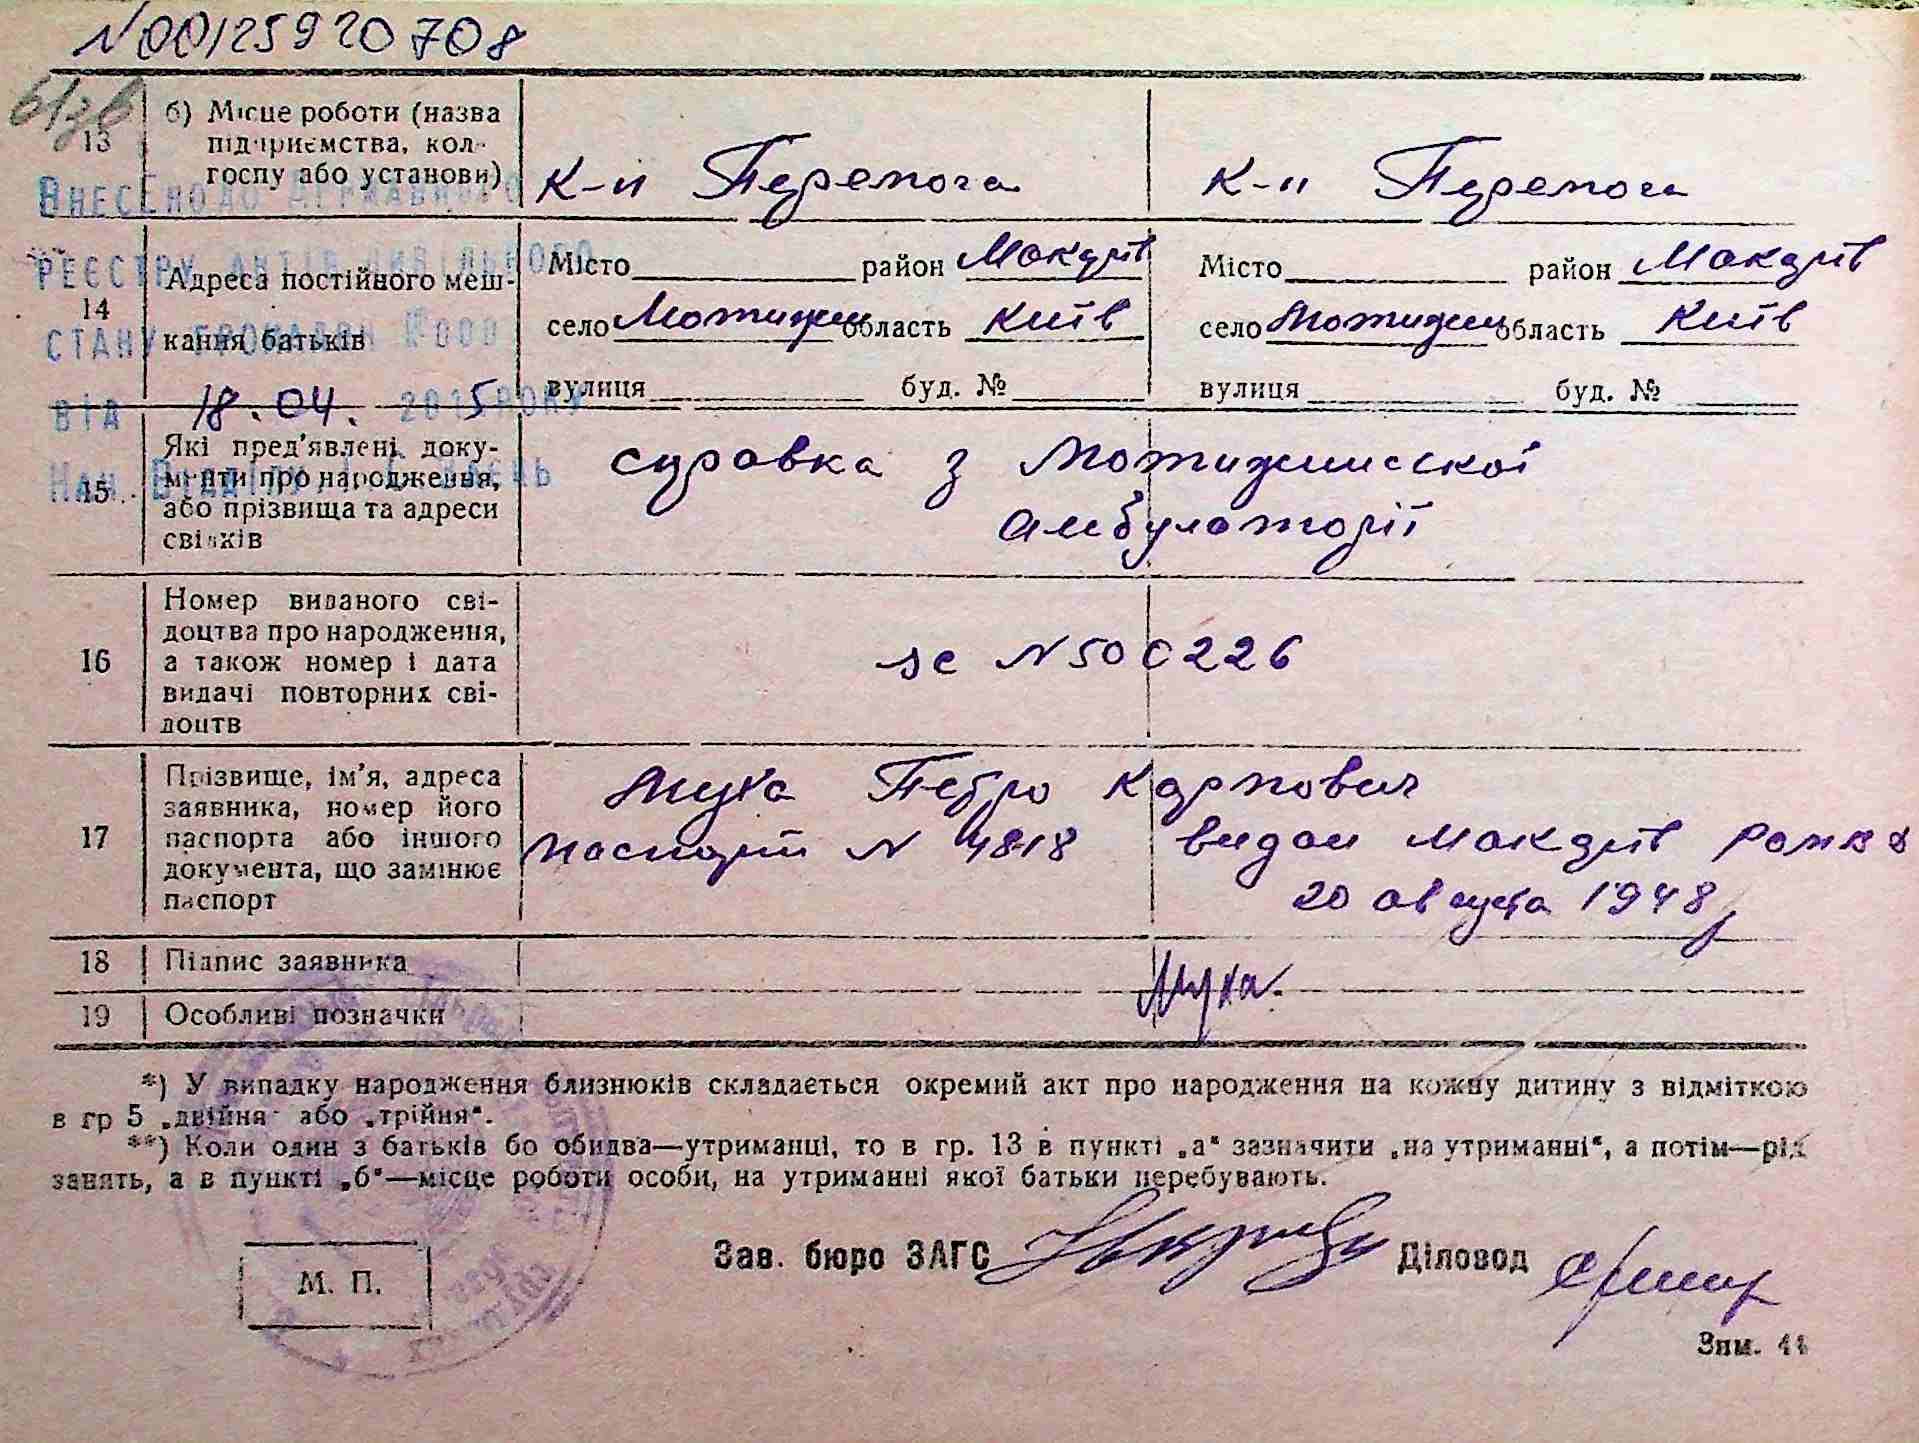 N00125920708
13
б) Місце роботи (назва
підприємства, кол-
госпу або установи)
к-п Перемога
к-п Перемога
Внесено до Державного
реєстру актів цивільного
стану громадян
від 18.04. 2015 року
Нач. Відділу
14
Адреса постійного меш-
кання батьків
Місто район Макарів
село Мотижин область Київ
вулиця буд. №
Місто район Макарів
село Мотижин область Київ
вулиця буд. №
15
Які пред'явлені доку-
менти про народження,
або прізвища та адреси
свідків
справка з Мотижинської
амбулаторії
16
Номер виданого сві-
доцтва про народження,
а також номер і дата
видачі повторних сві-
доцтв
N 500226
17
Прізвище, ім'я, адреса
заявника, номер його
паспорта або іншого
документа, що замінює
паспорт
Муха Петро Карпович
паспорт N 4818 видан Макарів
20 августа 1948р
18
Підпис заявника
Муха.
19
Особливі позначки
*) У випадку народження близнюків складається окремий акт про народження на кожну дитину з відміткою
в гр 5 „двійня" або „трійня".
**) Коли один з батьків бо обидва—утриманці, то в гр. 13 в пункті „а" зазначити „на утриманні", а потім—рід
занять, а в пункті „б"—місце роботи особи, на утриманні якої батьки перебувають.
М. П.
Зав. бюро ЗАГС
Діловод
Зам. 44